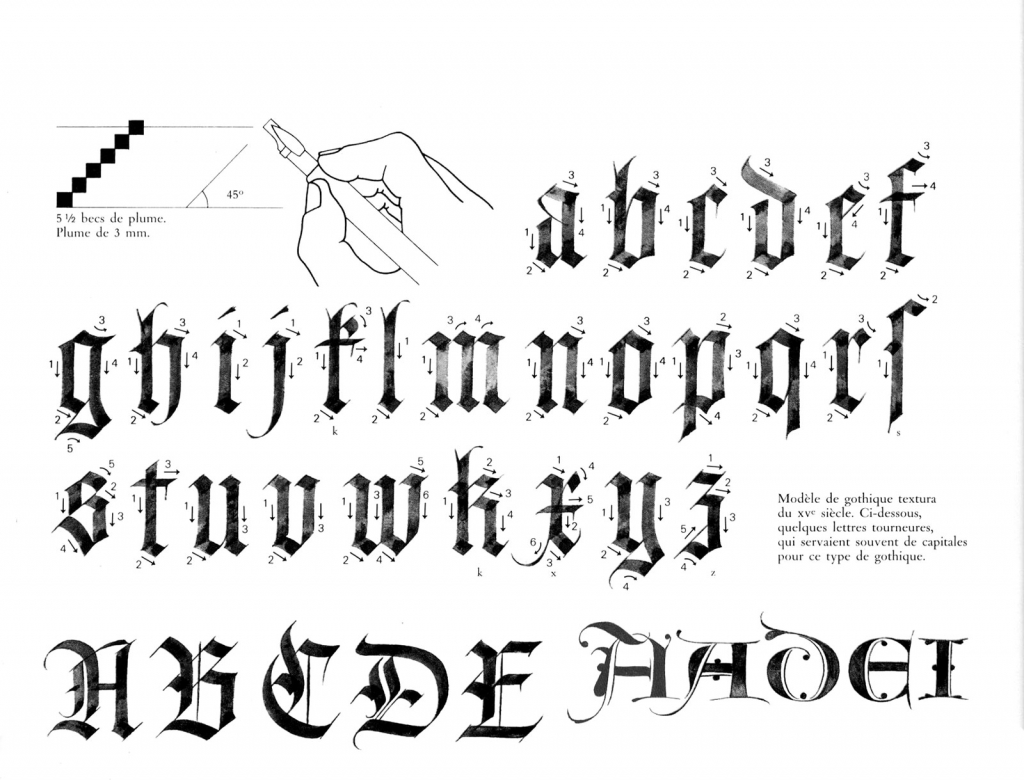 5 ½ becs de plume.
Plume de 3 mm.
45º
a b c d e f
g h i j k l m n o p q r s
k s
s t u v w k x y z
k x z
Modèle de gothique textura
du XVe siècle. Ci-dessous,
quelques lettres tourneures,
qui servaient souvent de capitales
pour ce type de gothique.
A B C D E A A D E I